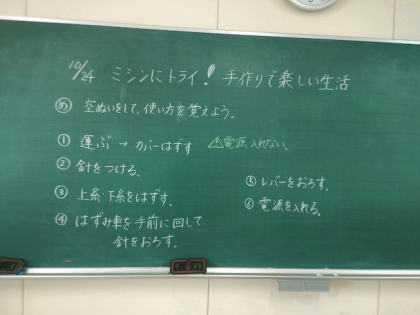 10/24 ミシンにトライ! 手作りで楽しい生活
め 空ぬいをして、使い方を覚えよう。
① 運ぶ → カバーはずす ⚠電源入れない。
② 針をつける。
③ 上糸・下糸をはずす。
④ はずみ車を手前に回して
針をおろす。
⑤ レバーをおろす。
⑥ 電源を入れる。